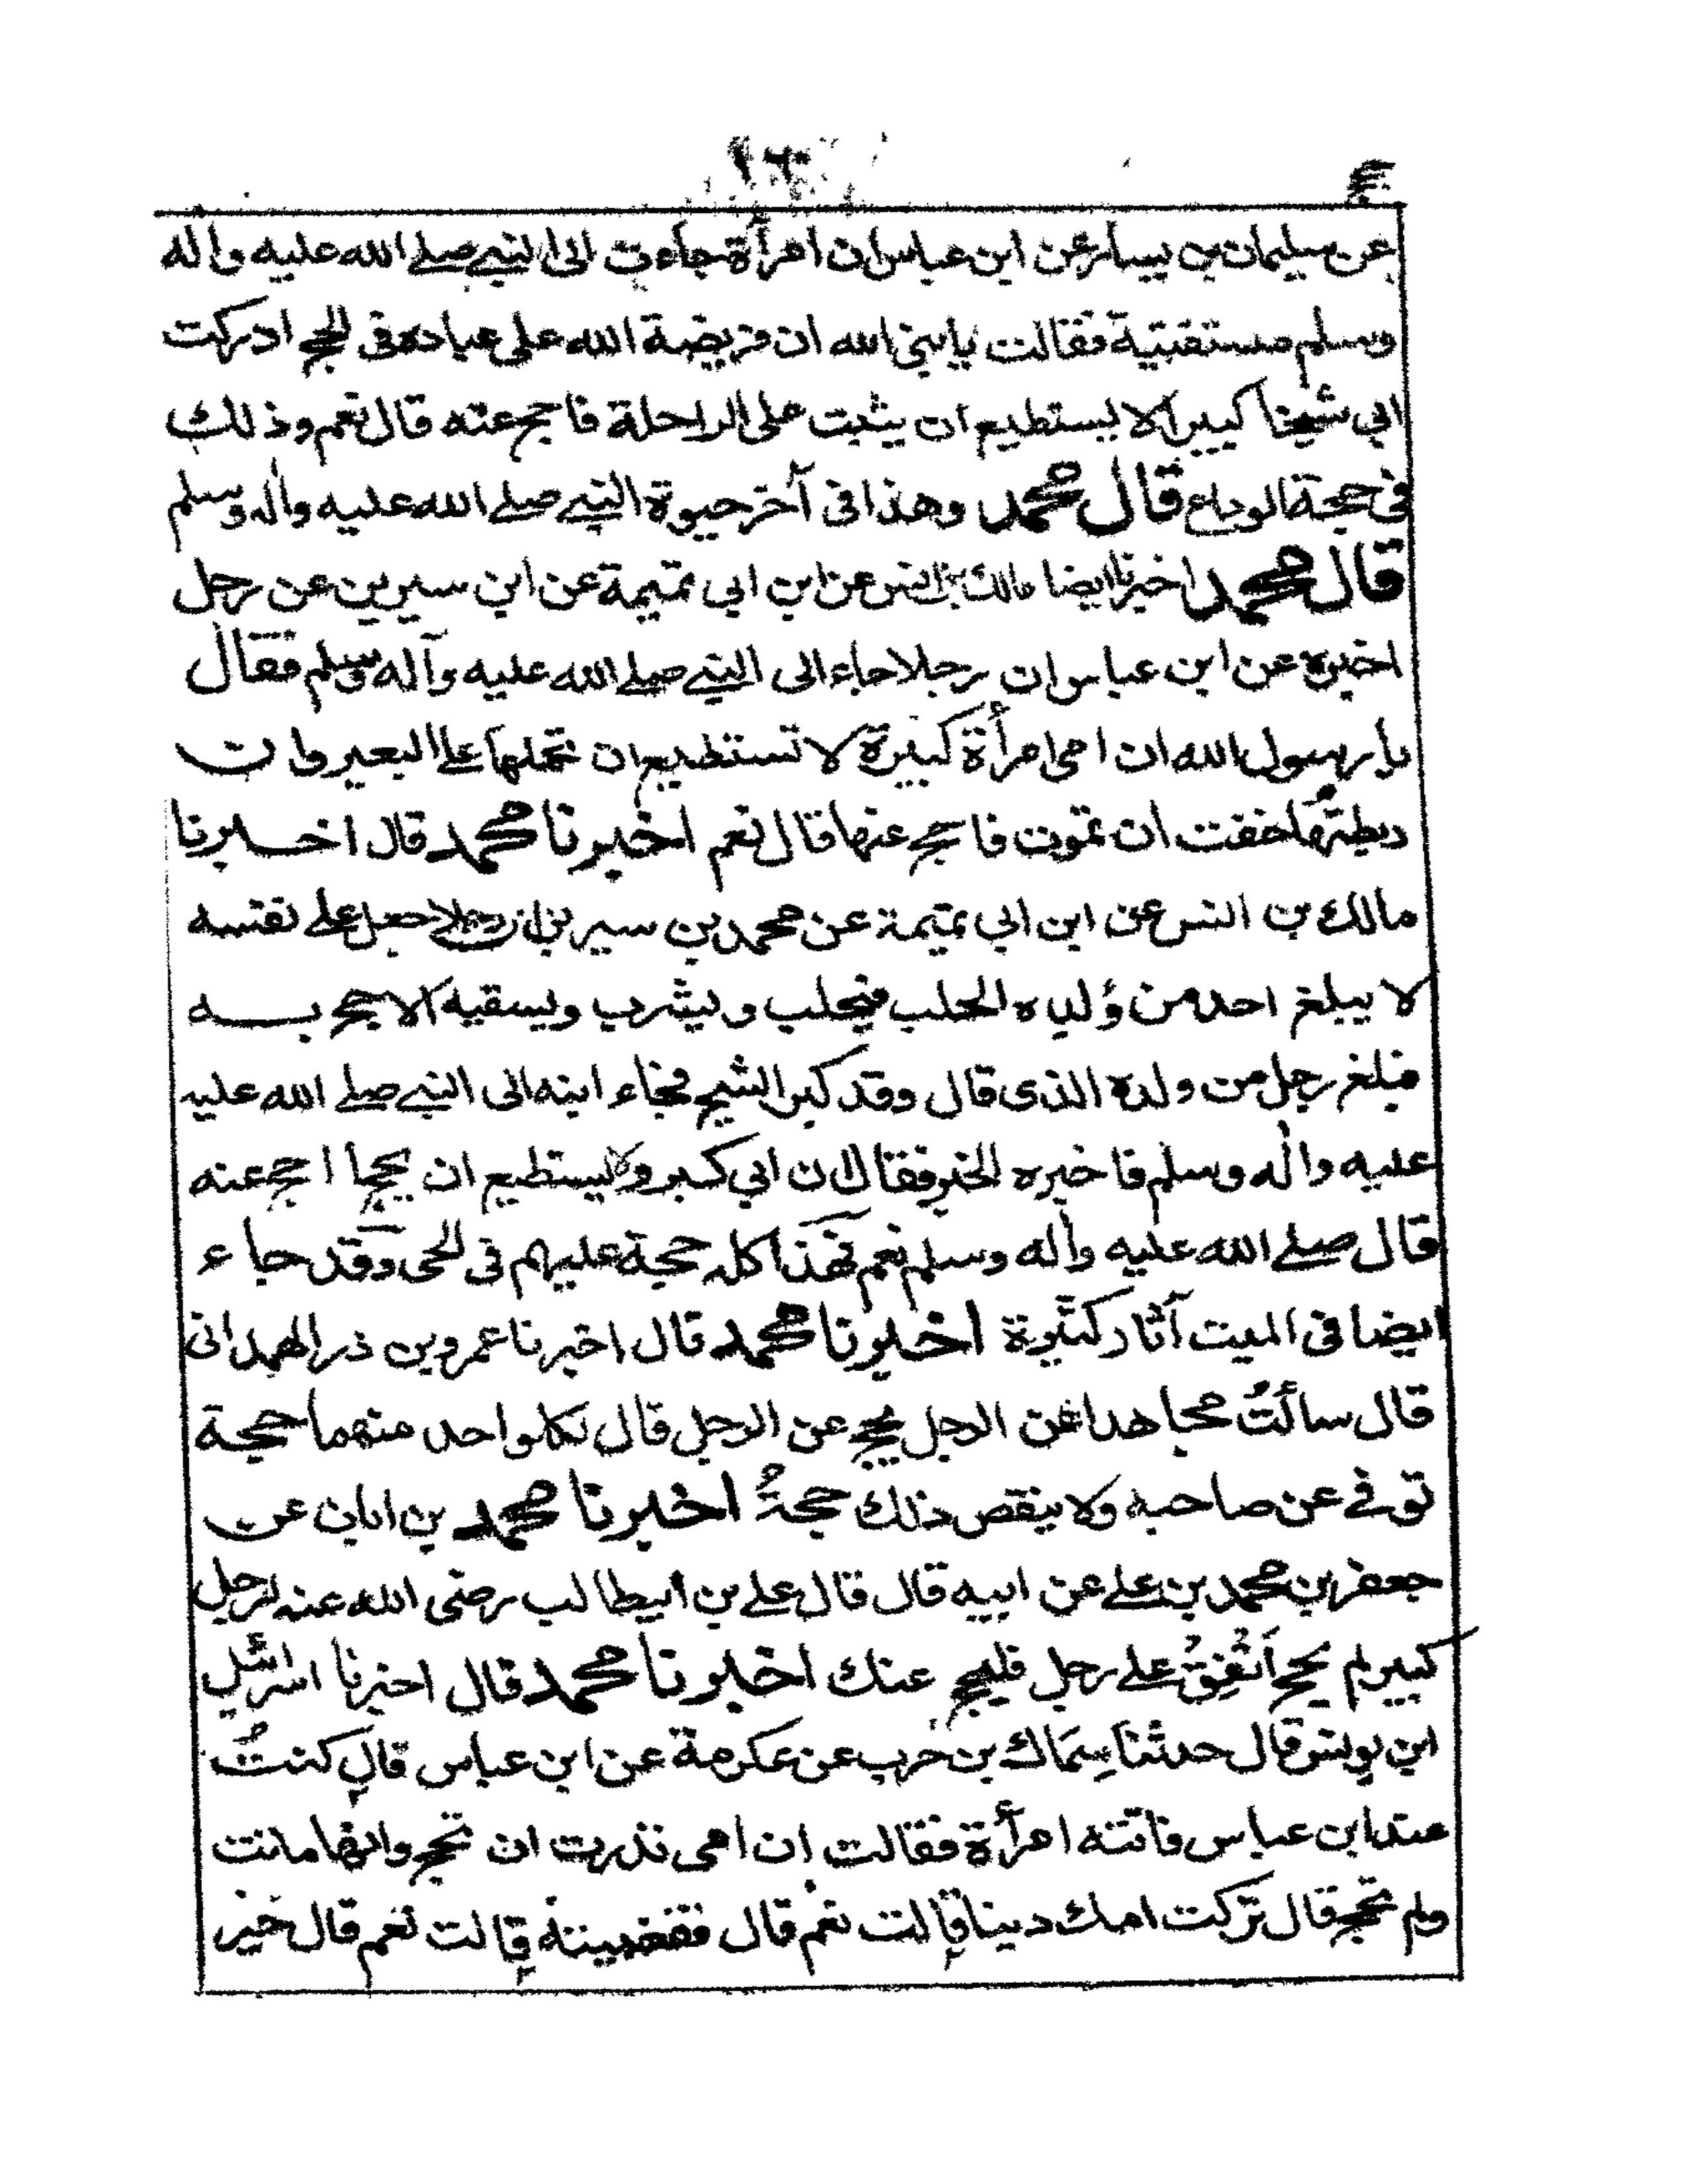 ١٦٠
عن سليمان بن يسار عن ابن عباس ان امرأة جاءت الى النبي صلے الله عليه واله
وسلم مستفتية فقالت يا نبي الله ان فريضة الله على عباده فى الحج ادركت
ابي شيخا كبيرا لا يستطيع ان يثبت على الراحلة فاحج عنه قال نعم وذلك
فى حجة الوداع قال محمد وهذا فى آخر حيوة النبي صلے الله عليه واله وسلم
قال محمد اخبرنا ايضا مالك بن انس عن ابن ابي تميمة عن ابن سيرين عن رجل
اخبره عن ابن عباس ان رجلا جاء الى النبي صلے الله عليه وآله وسلم فقال
يا رسول الله ان امى امرأة كبيرة لا تستطيع ان تحملها علے البعير وان
ربطتها خفت ان تموت فاحج عنها قال نعم اخبرنا محمد قال اخبرنا
مالك بن انس عن ابن ابي تميمة عن محمد بن سيرين ان رجلا جعل علے نفسه
لا يبلغ احد من ولده الحلب فيحلب ويشرب ويسقيه الا حج به
فبلغ رجل من ولده الذى قال وقد كبر الشيخ فجاء ابنه الى النبي صلے الله عليه
عليه واله وسلم فاخبره الخبر فقال ان ابي كبر ولا يستطيع ان يحج أ احج عنه
قال صلے الله عليه واله وسلم نعم فهذا كله حجة عليهم فى الحى وقد جاء
ايضا فى الميت آثار كثيرة اخبرنا محمد قال اخبرنا عمرو بن ذر الهمدانى
قال سألتُ مجاهدا عن الرجل يحج عن الرجل قال لكل واحد منهما حجة
توفے عن صاحبه ولا ينقص ذلك حجةُ اخبرنا محمد بن ابان عن
جعفر بن محمد بن علے عن ابيه قال قال علے بن ابيطالب رضى الله عنه لرجل
كبير لم يحج اَنْفِقْ علے رجل فليحج عنك اخبرنا محمد قال اخبرنا اسرائيل
ابن يونس قال حدثنا سِمَاك بن حرب عن عكرمة عن ابن عباس قال كنتُ
عند ابن عباس فاتته امرأة فقالت ان امى نذرت ان تحج وانها ماتت
ولم تحج قال تركت امك دينا قالت نعم قال فقضيتنه قالت نعم قال خير